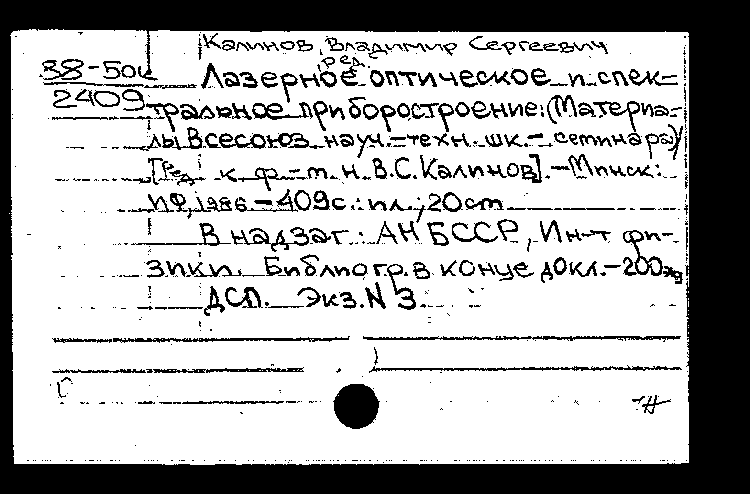 Калинов, Владимир Сергеевич
ред.
38-50ц
Лазерное оптическое и спек-
2409
тральное приборостроение: (Материа-
лы Всесоюз. науч.-техн. шк.-семинара)/
[Ред. к. ф.-м. н. В.С. Калинов]. - Минск:
ИФ, 1986. - 409 с.: ил.; 20 см.
В надзаг.: АН БССР, Ин-т фи-
зики. Библиогр. в конце докл. - 200 экз.
ДСП. Экз. N 3.